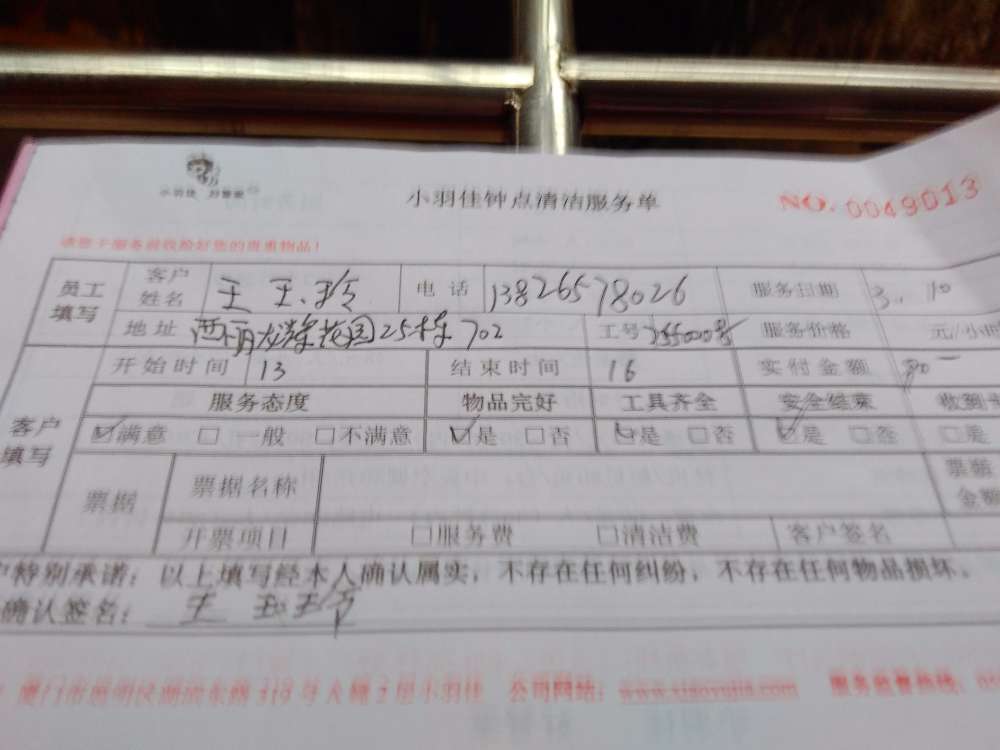 小羽佳 好管家
小羽佳钟点清洁服务单
NO. 0049013
请您于服务前收拾好您的贵重物品！
员工填写 客户姓名 王 玲 电话 13826578026 服务日期 3. 10
地址 西丽 花园25栋702 工号 服务价格 元/小时
客户填写 开始时间 13 结束时间 16 实付金额
服务态度 物品完好 工具齐全 安全结束 收到
☑满意 □一般 □不满意 ☑是 □否 ☑是 □否 ☑是 □否 □是
票据 票据名称 票据金额
开票项目 □服务费 □清洁费 客户签名
特别承诺：以上填写经本人确认属实，不存在任何纠纷，不存在任何物品损坏。
确认签名：王 玲
厦门市思明区湖滨东路319号A幢2层小羽佳 公司网站：www.xiaoyujia.com 服务监督热线：05